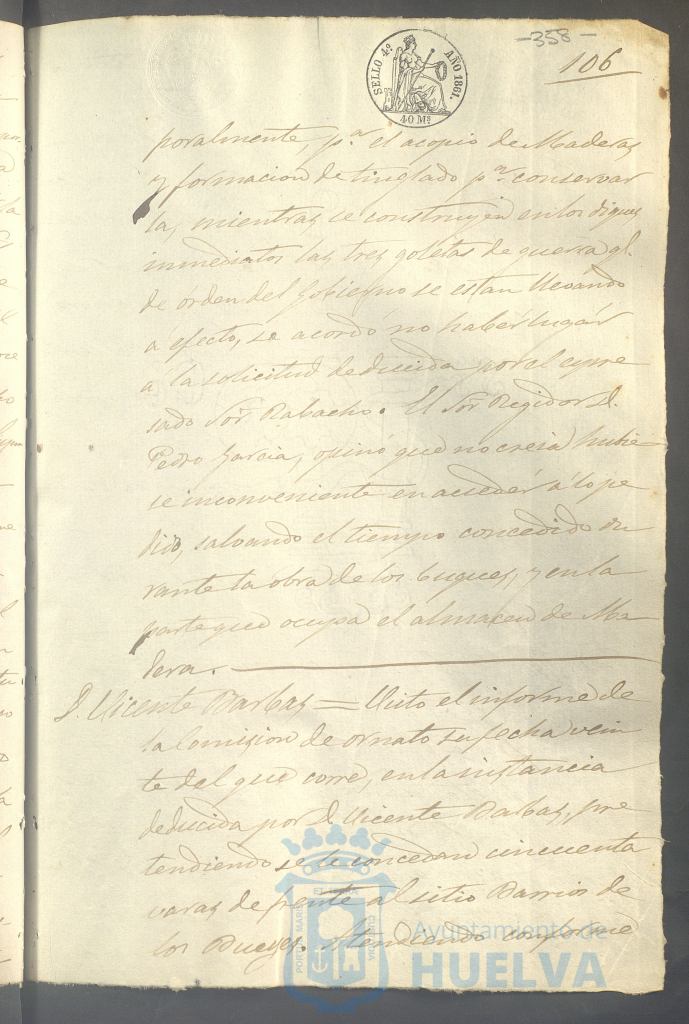 -358-
106
SELLO 4.º AÑO 1861.
40 Ms
poralmente, p.ª el acopio de Maderas
y formacion de tinglado p.ª conservar
la, mientras se construyen en los diques
inmediatos las tres goletas de guerra q.e
de órden del Gobierno se estan llevando
á efecto, se acordó no haber lugar
á la solicitud deducida por el expre
sado Sor. Rabacho. El Sor. Regidor D.
Pedro Garcia, opinó que no creia hubie
se inconveniente en acceder á lo pe
dido, salvando el tiempo concedido du
rante la obra de los buques, y en la
parte que ocupa el almacen de Ma
dera.
D. Vicente Barbas = Visto el informe de
la Comision de ornato su fecha vein
te del que corre, en la instancia
deducida por D. Vicente Barbas, pre
tendiendo se le concedan cincuenta
varas de frente al sitio Barrio de
los Bueyes. Atendiendo conforme
Ayuntamiento de
HUELVA